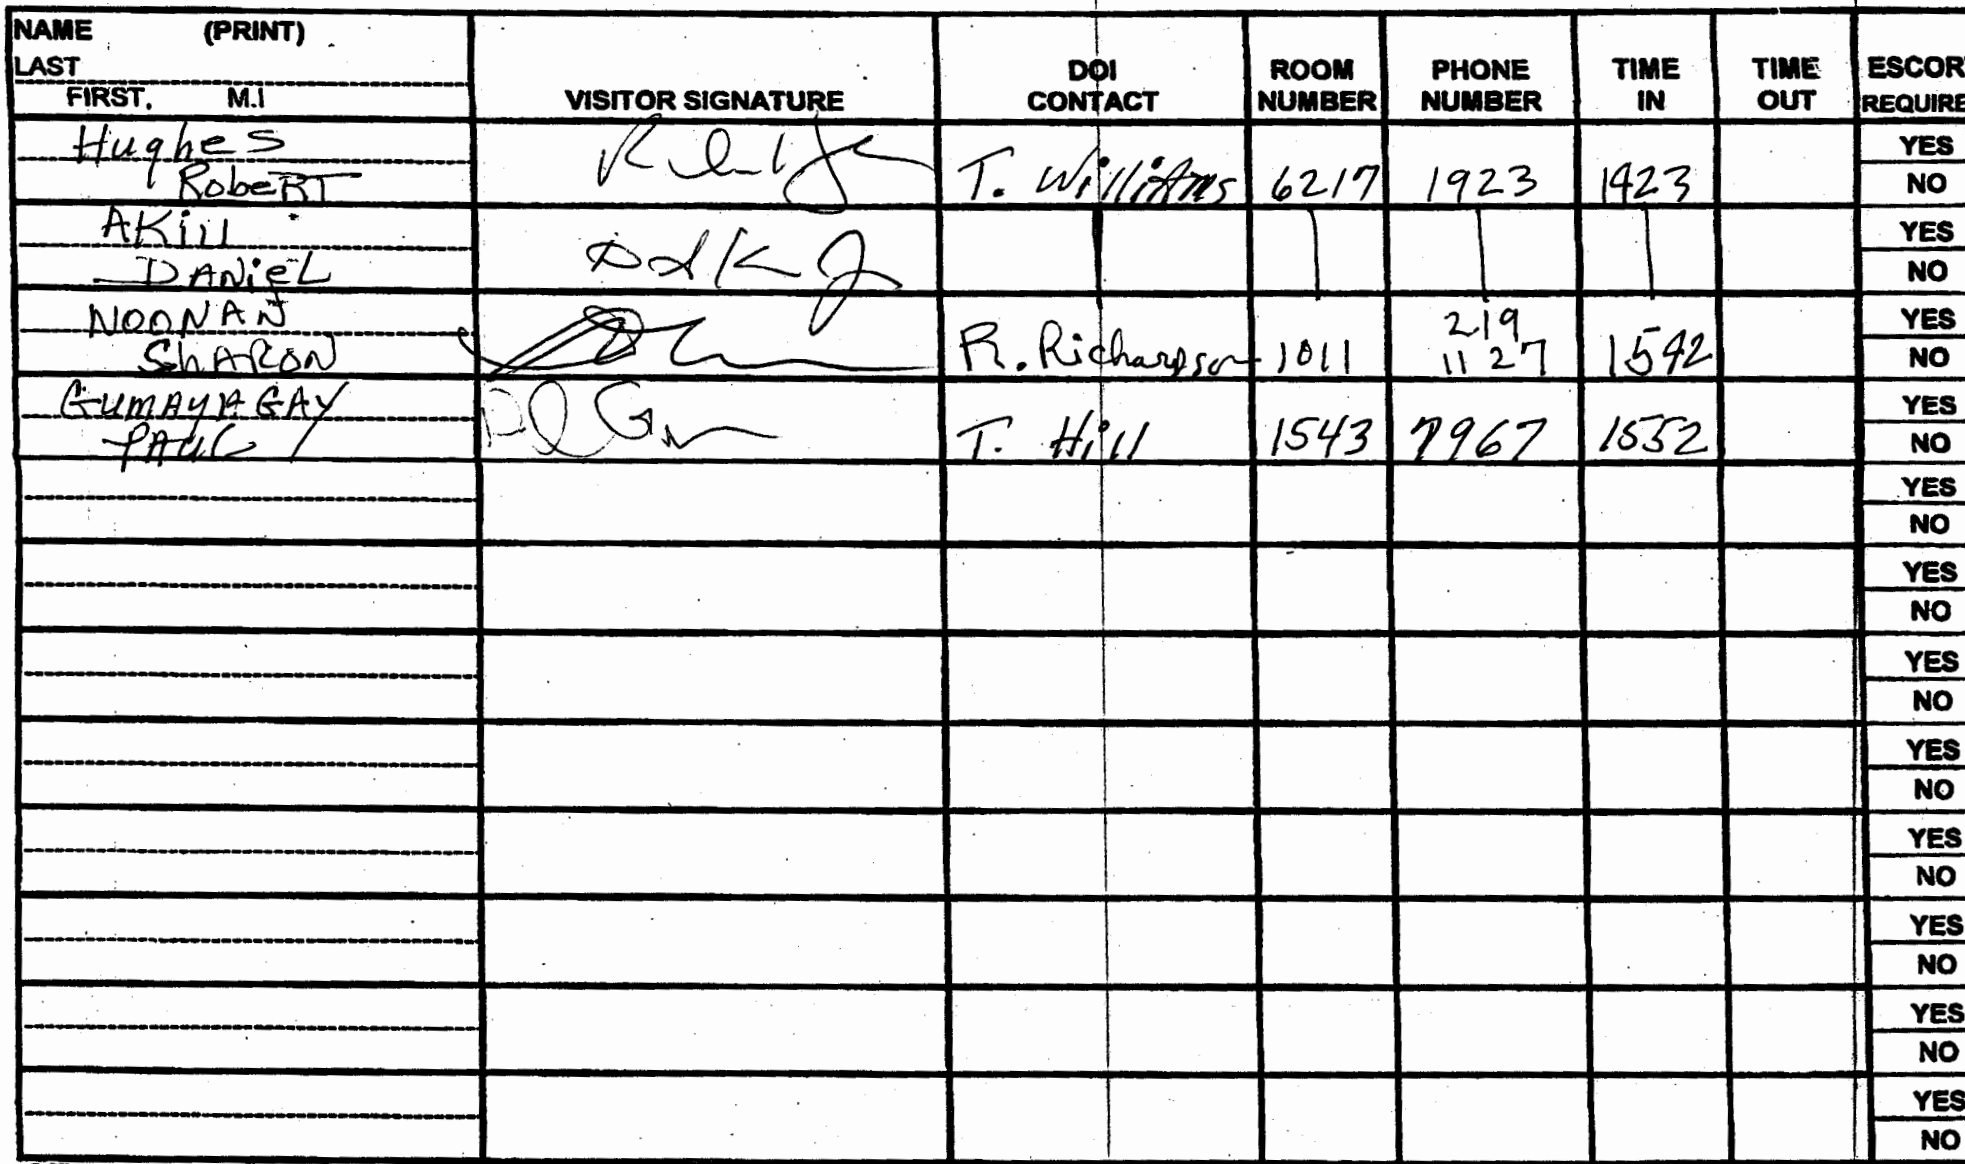 NAME (PRINT)
LAST
FIRST, M.I
VISITOR SIGNATURE
DOI
CONTACT
ROOM
NUMBER
PHONE
NUMBER
TIME
IN
TIME
OUT
ESCOR
REQUIRE
Hughes
Robert
T. Williams 6217 1923 1423
YES
NO
AKill
DANiEL
YES
NO
NOONAN
SHARON
R. Richardson 1011 219
1127 1542
YES
NO
GUMAYAGAY
PAUL
T. Hill 1543 7967 1552
YES
NO
YES
NO
YES
NO
YES
NO
YES
NO
YES
NO
YES
NO
YES
NO
YES
NO